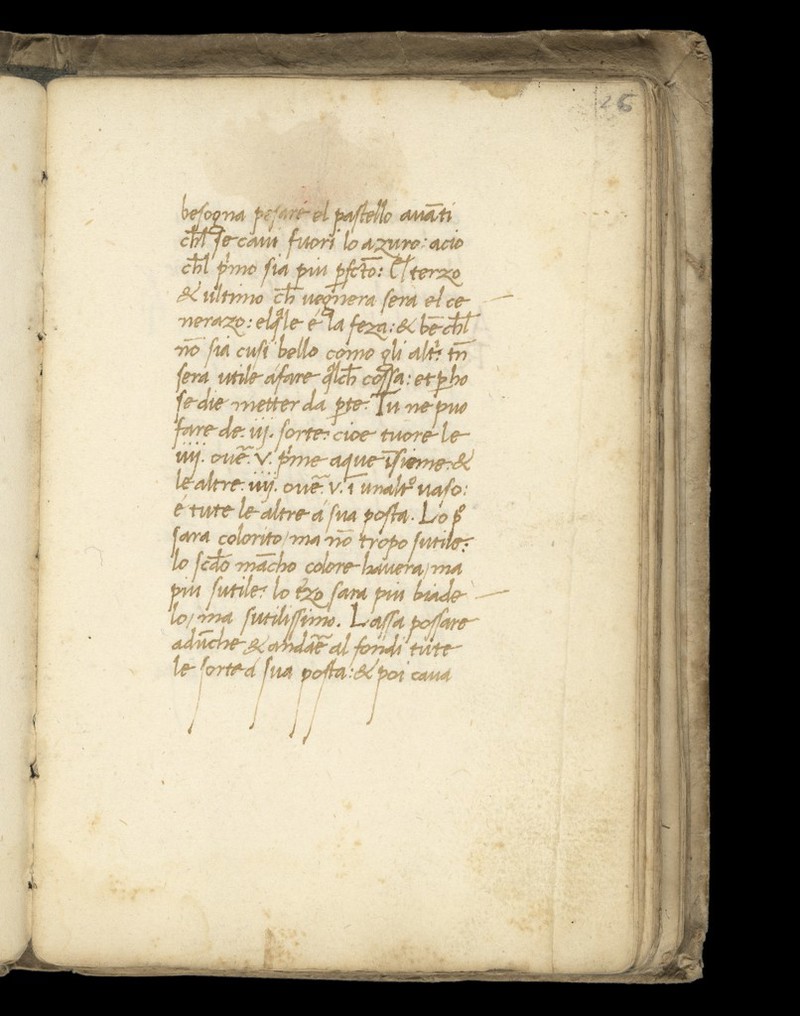 26
besogna pesare el pastello auāti
ch̄l se caui fuori lo azuro: acio
ch̄l p̄mo sia piu p̄fcto: El terzo
& ultimo ch̄ uegnera sera el ce
nerazo: elq̄le é la feza: & bē ch̄l
nō sia cusi bello como gli altr̄: tn̄
sera utile á fare q̄lch̄ cossa: et p̄ho
se die metter da p̄te. Tu ne puo
fare de .iij. sorte: cioe tuore le
iiij. ouē .v. p̄me aque īsieme: &
le altre .iiij. ouē .v. ī unaltº uaso:
é tute le altre á sua posta. Lo pº
sara colorito, ma nō tropo sutile:
lo scd̄o mācho colore hauera, ma
piu sutile: lo t̄zo sara piu biade
lo, ma sutilissimo. Lassa posare
adūche & andāē al fondi tute
le sorte á sua posta: & poi caua